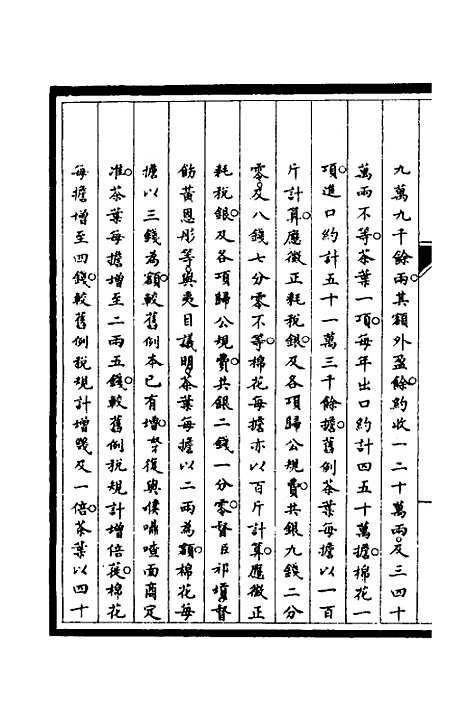 九萬九千餘兩其額外盈餘約收一二十萬兩及三四十
萬兩不等茶葉一項每年出口約計四五十萬擔棉花一
項進口約計五十一萬三千餘擔舊例茶葉每擔以一百
斤計算應徵正耗稅銀及各項歸公規費共銀九錢二分
零及八錢七分零不等棉花每擔亦以百斤計算應徵正
耗稅銀及各項歸公規費共銀二錢一分零督臣祁𡎴督
飭黃恩彤等與夷目議明茶葉每擔以二兩為額棉花每
擔以三錢為額較舊例本已有增復與僕嘺喳面商定
准茶葉每擔增至二兩五錢較舊例稅規計增倍蓰棉花
每擔增至四錢較舊例稅規計增幾及一倍茶葉以四十